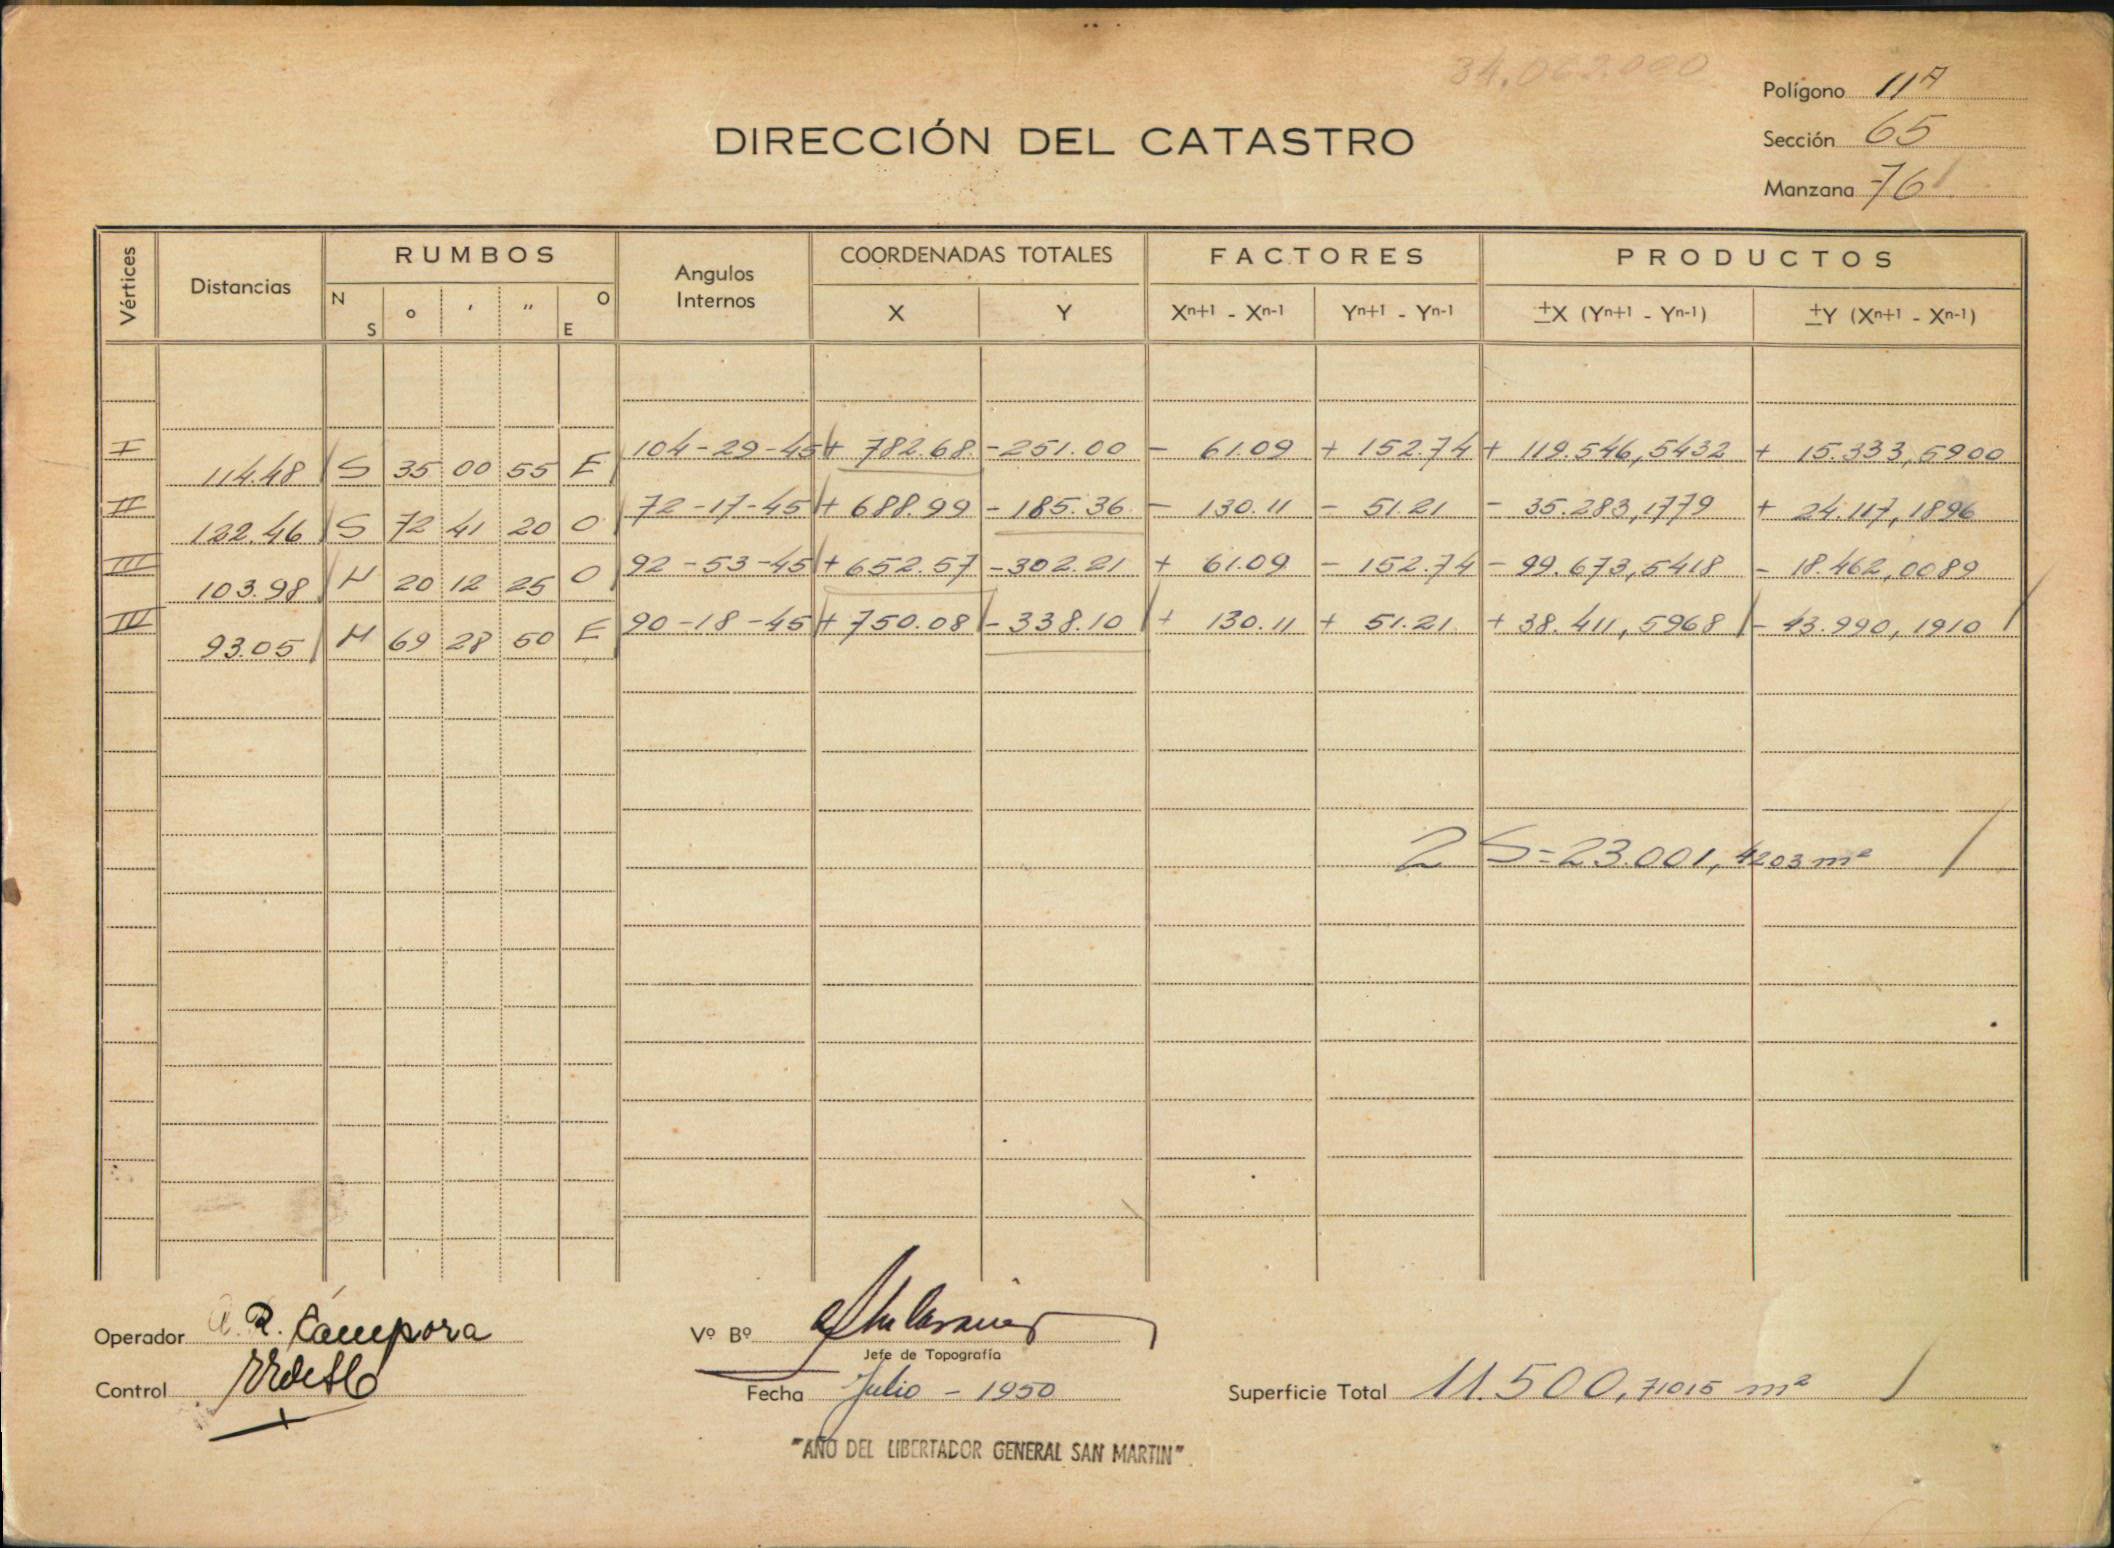 34.062.000
Polígono 11A
DIRECCIÓN DEL CATASTRO
Sección 65
Manzana 76
Vértices Distancias RUMBOS Angulos Internos COORDENADAS TOTALES FACTORES PRODUCTOS
N S ° ' " O E X Y Xn+1 - Xn-1 Yn+1 - Yn-1 ±X (Yn+1 - Yn-1) ±Y (Xn+1 - Xn-1)
I 104-29-45 + 782.68 -251.00 - 61.09 + 152.74 + 119.546,5432 + 15.333,5900
114.48 S 35 00 55 E
II 72-17-45 + 688.99 - 185.36 - 130.11 - 51.21 - 35.283,1779 + 24.117,1896
122.46 S 72 41 20 O
III 92-53-45 + 652.57 -302.21 + 61.09 - 152.74 - 99.673,5418 - 18.462,0089
103.98 N 20 12 25 O
IV 90-18-45 + 750.08 - 338.10 + 130.11 + 51.21 + 38.411,5968 - 43.990,1910
93.05 N 69 28 50 E
2 S = 23.001,4203 m²
Operador R. Cámpora
Vº Bº
Jefe de Topografía
Control
Fecha Julio - 1950
Superficie Total 11.500,71015 m²
"AÑO DEL LIBERTADOR GENERAL SAN MARTIN"